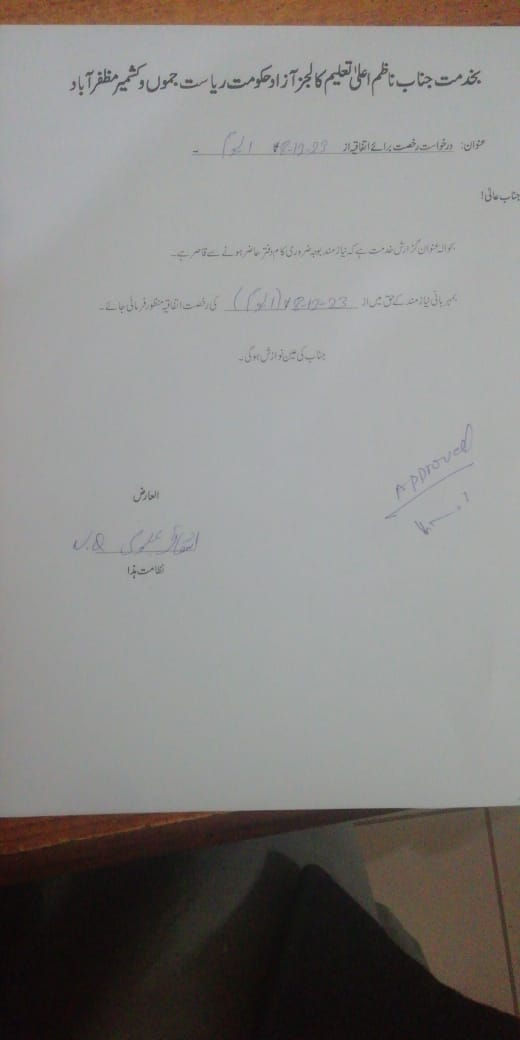 بخدمت جناب ناظم اعلیٰ تعلیم کالجز آزاد حکومت ریاست جموں و کشمیر مظفر آباد
عنوان: درخواست رخصت برائے اتفاقیہ از 8-12-23 ایوم ۔
جناب عالی!
بحوالہ عنوان گزارش خدمت ہے کہ نیاز مند بوجہ ضروری کام دفتر حاضر ہونے سے قاصر ہے۔
بمہربانی نیاز مند کے حق میں از 8-12-23 (ایوم) کی رخصت اتفاقیہ منظور فرمائی جائے۔
جناب کی عین نوازش ہوگی۔
Approved
العارض
نظامت ہذا